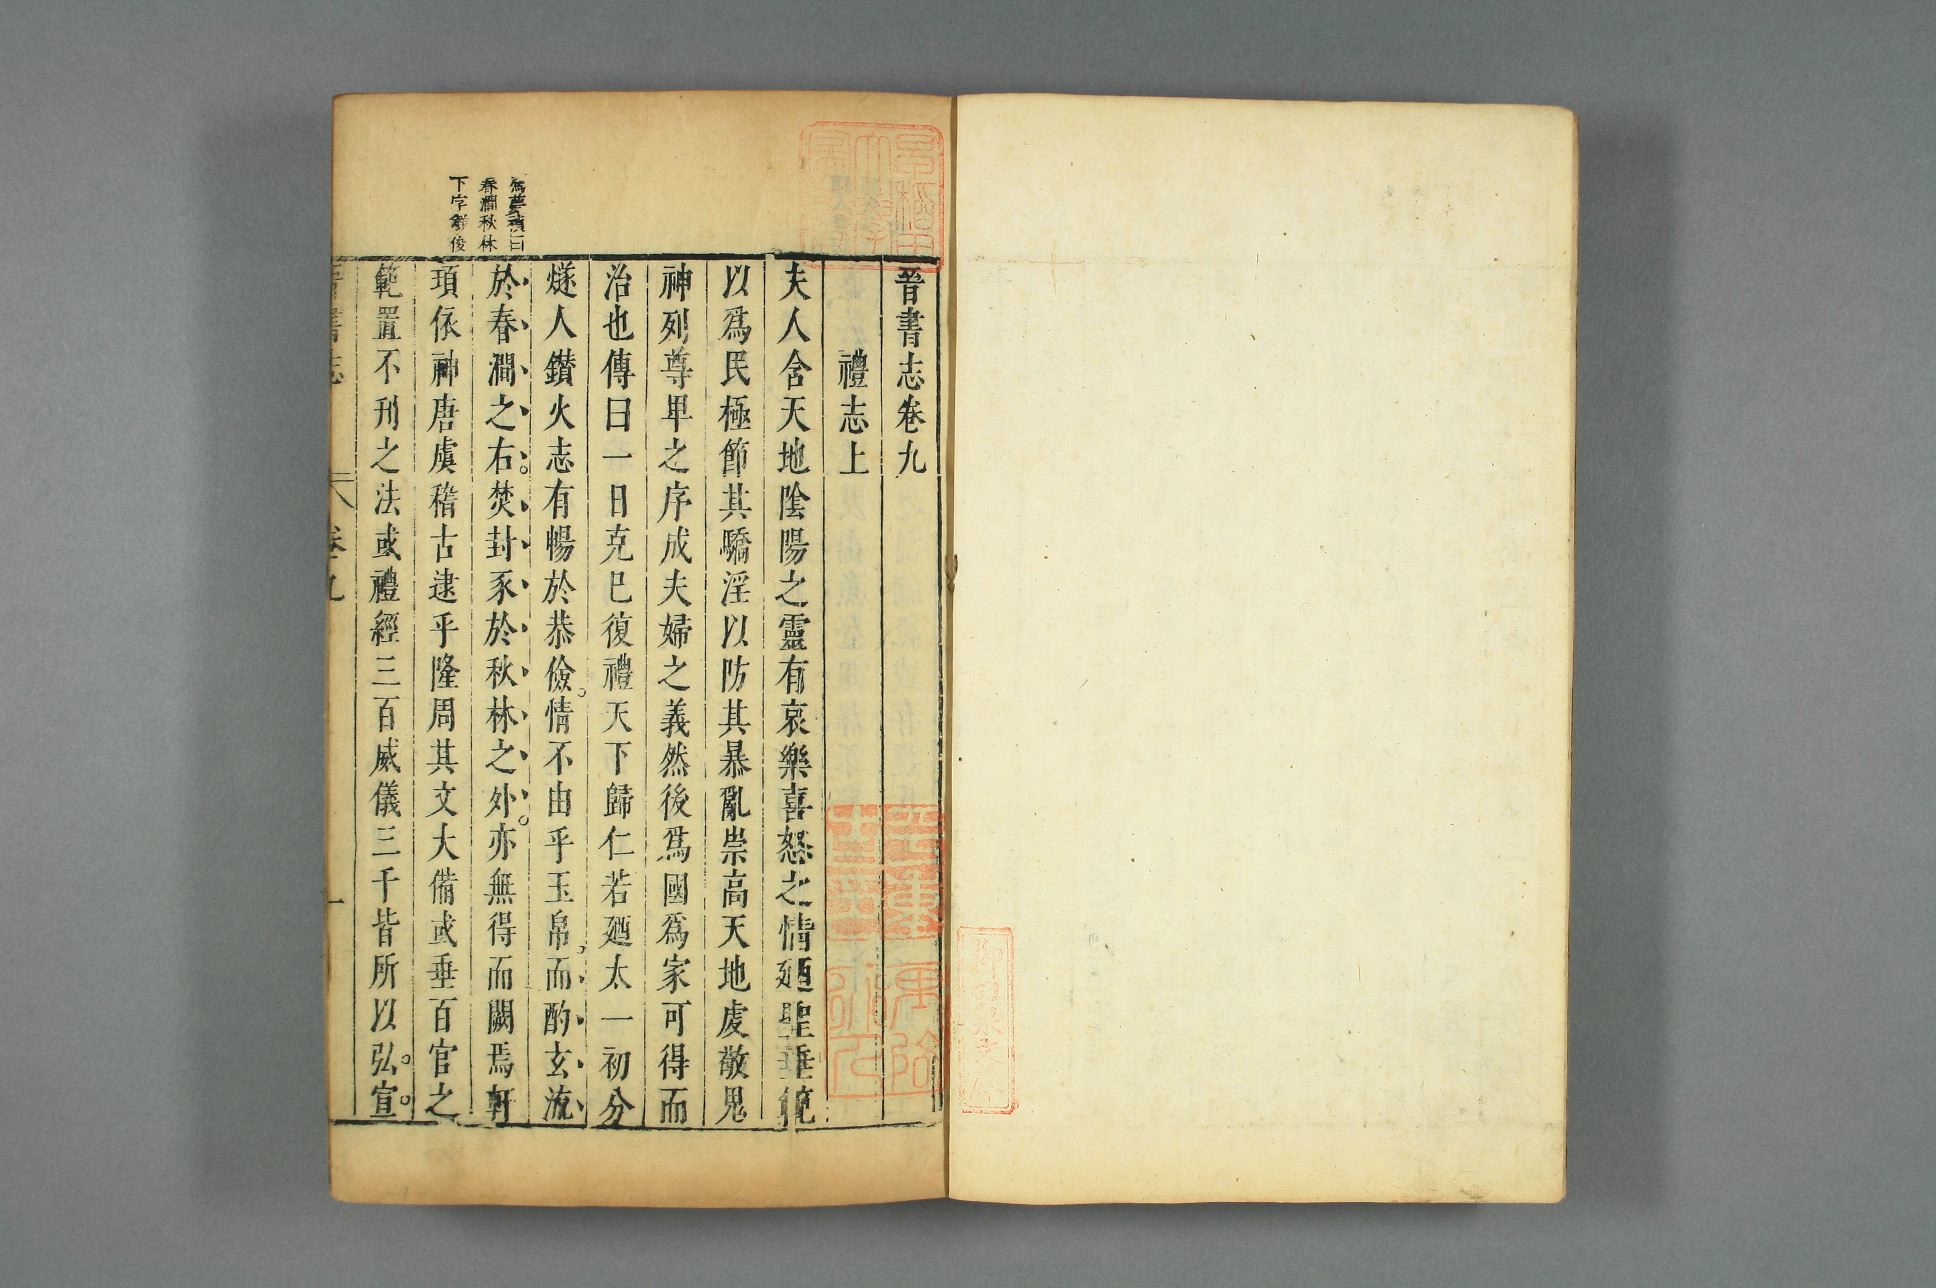 晉書志卷九
禮志上
夫人含天地陰陽之靈有哀樂喜怒之情廼聖垂範
以爲民極節其驕淫以防其暴亂崇高天地虔敬鬼
神列尊卑之序成夫婦之義然後爲國爲家可得而
治也傳曰一日克已復禮天下歸仁若廼太一初分
燧人鑚火志有暢於恭儉。情不由乎玉帛，而酌玄流
於春澗之右。焚封豕於秋林之外。亦無得而闕焉軒
頊依神唐虞稽古逮乎隆周其文大備或垂百官之
範置不刊之法或禮經三百威儀三千皆所以弘。宣。
春澗秋林
下字鮮俊
晉書志
卷九
一